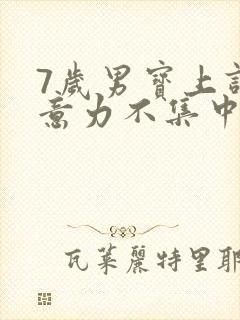 7歲男寶上
意力不集中
瓦萊麗特里耶